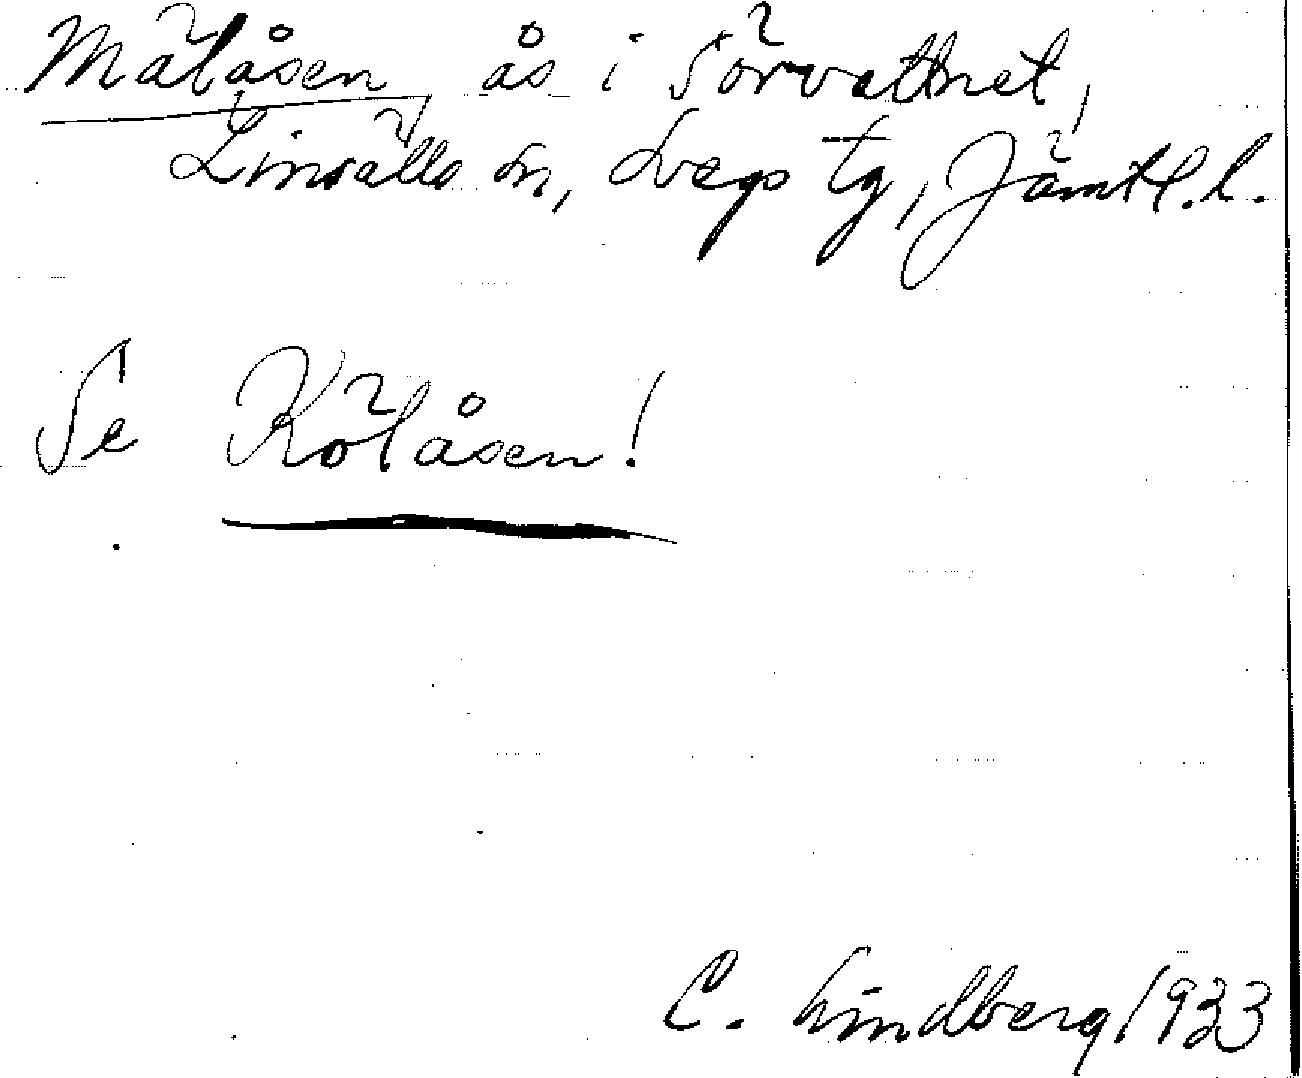 Mälåsen, ås i Sörvattnet,
Linsälls sn, Svegs tg, Jämtl. l.
Se Kölåsen!
C. Lindberg 1933